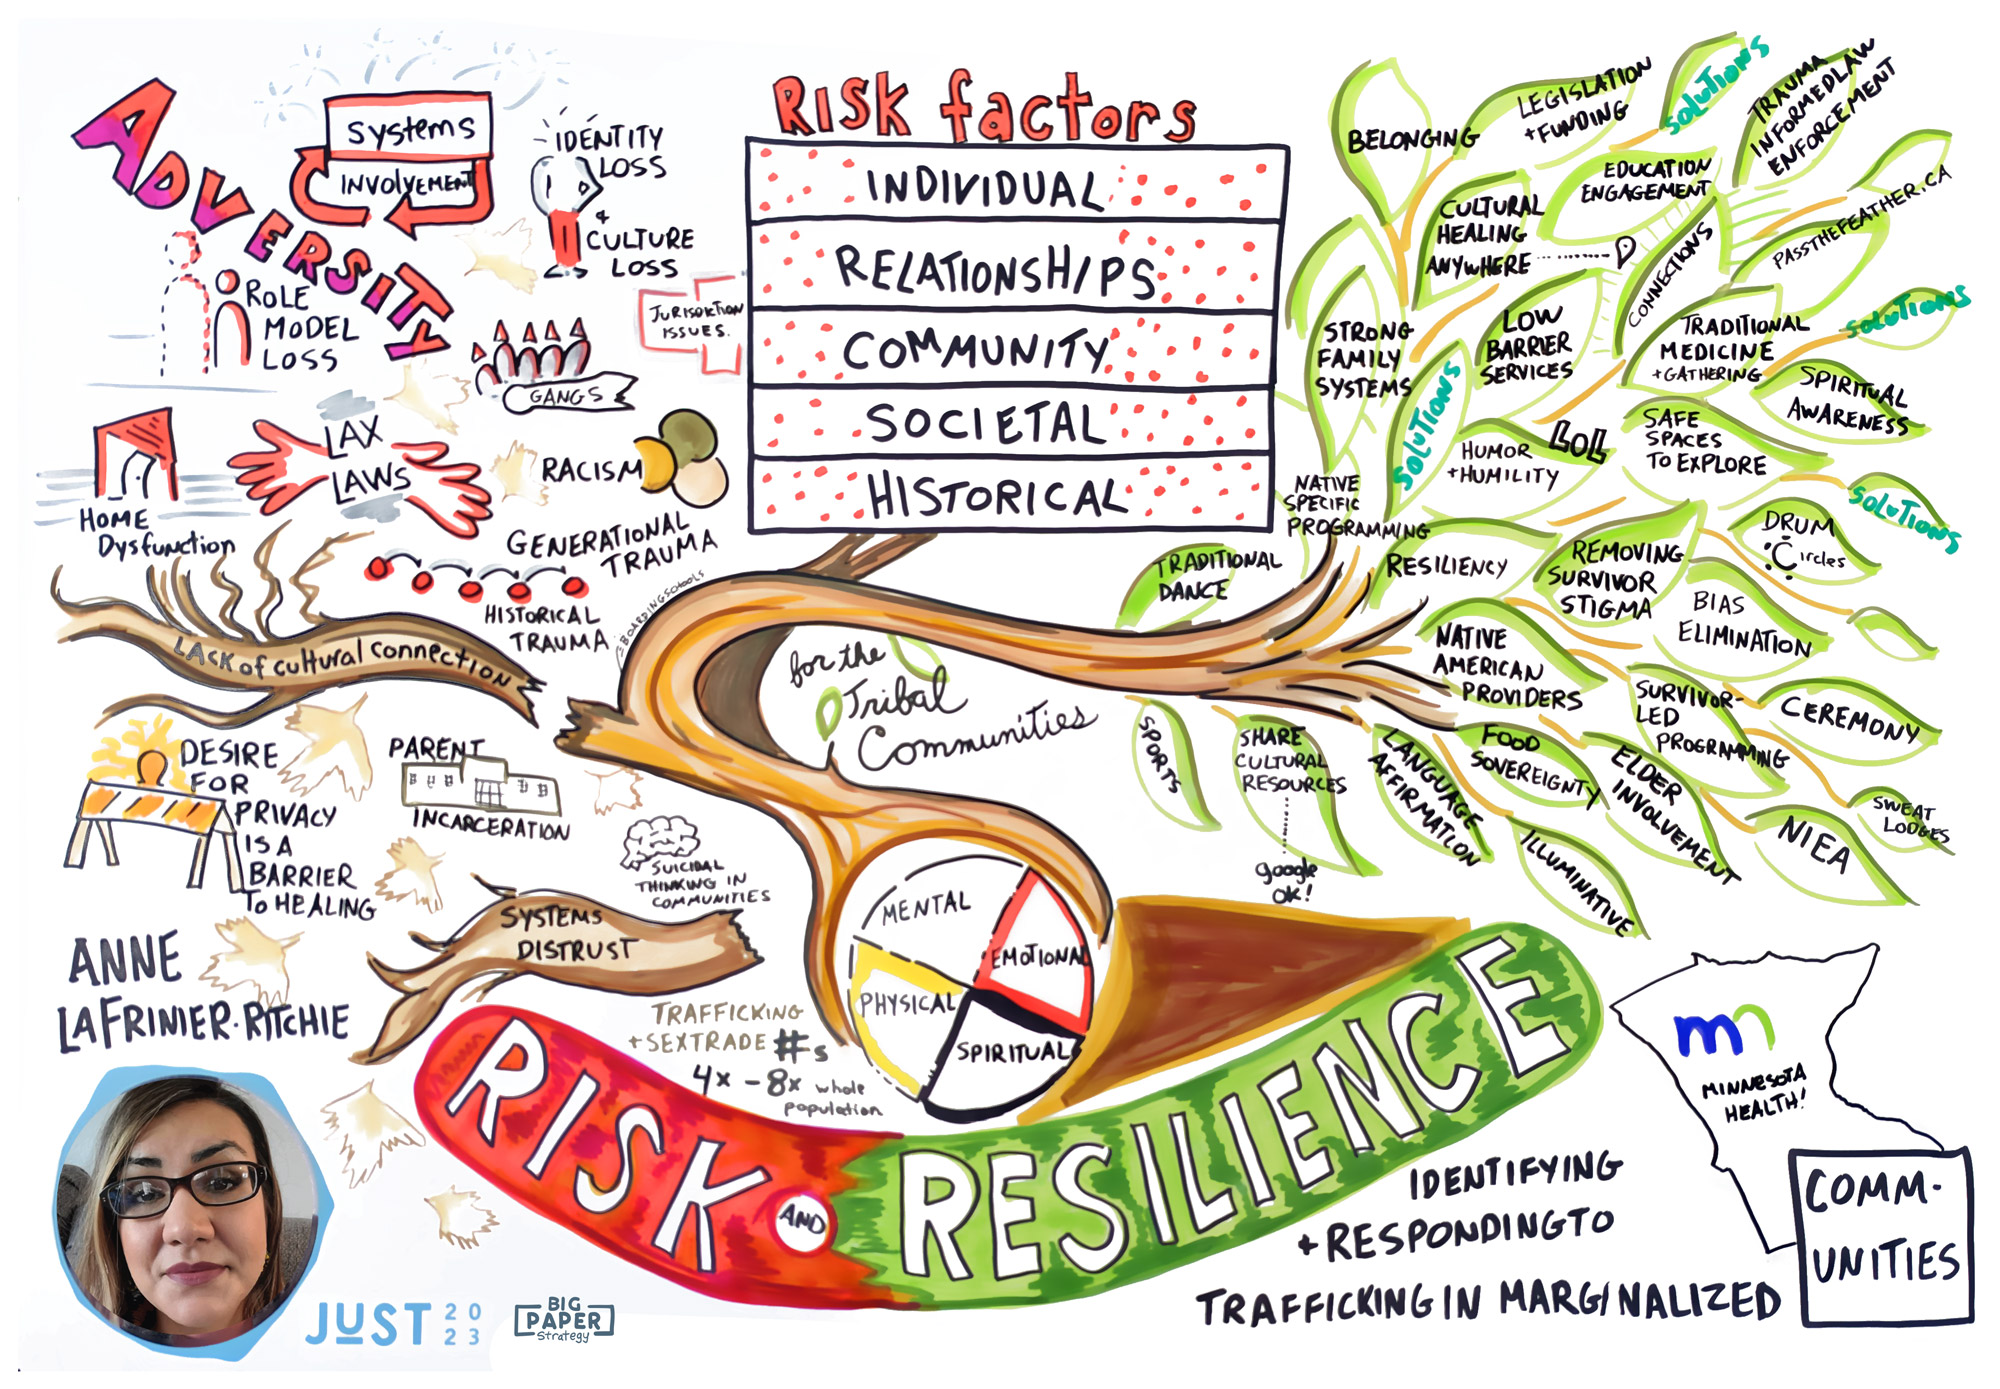 ADVERSITY
Systems
INVOLVEMENT
IDENTITY
LOSS
+
CULTURE
LOSS
ROLE
MODEL
LOSS
JURISDICTION
ISSUES.
GANGS
HOME
Dysfunction
LAX
LAWS
RACISM
GENERATIONAL
TRAUMA
HISTORICAL
TRAUMA
BOARDINGSCHOOLS
LACK of cultural connection
DESIRE
FOR
PRIVACY
IS A
BARRIER
To HEALING
PARENT
INCARCERATION
SUICIDAL
THINKING IN
COMMUNITIES
SYSTEMS
DISTRUST
ANNE
LAFRINIER-RITCHIE
TRAFFICKING
+ SEXTRADE #s
4x - 8x whole
population
JUST 20
23
BIG
PAPER
Strategy
RISK factors
INDIVIDUAL
RELATIONSHIPS
COMMUNITY
SOCIETAL
HISTORICAL
for the
Tribal
Communities
MENTAL
EMOTIONAL
PHYSICAL
SPIRITUAL
RISK AND RESILIENCE
BELONGING
LEGISLATION
+FUNDING
SOLUTIONS
TRAUMA
INFORMED LAW
ENFORCEMENT
EDUCATION
ENGAGEMENT
CULTURAL
HEALING
ANYWHERE
CONNECTIONS
PASSTHEFEATHER.CA
STRONG
FAMILY
SYSTEMS
LOW
BARRIER
SERVICES
TRADITIONAL
MEDICINE
+GATHERING
SOLUTIONS
SPIRITUAL
AWARENESS
SOLUTIONS
HUMOR
+HUMILITY
LOL
SAFE
SPACES
TO EXPLORE
SOLUTIONS
NATIVE
SPECIFIC
PROGRAMMING
RESILIENCY
REMOVING
SURVIVOR
STIGMA
DRUM
Circles
BIAS
ELIMINATION
TRADITIONAL
DANCE
NATIVE
AMERICAN
PROVIDERS
SURVIVOR-
LED
PROGRAMMING
CEREMONY
SPORTS
SHARE
CULTURAL
RESOURCES
google
ok!
LANGUAGE
AFFIRMATION
FOOD
SOVEREIGNTY
ELDER
INVOLVEMENT
ILLUMINATIVE
NIEA
SWEAT
LODGES
mn
MINNESOTA
HEALTH!
IDENTIFYING
+ RESPONDING TO
TRAFFICKING IN MARGINALIZED
COMM-
UNITIES